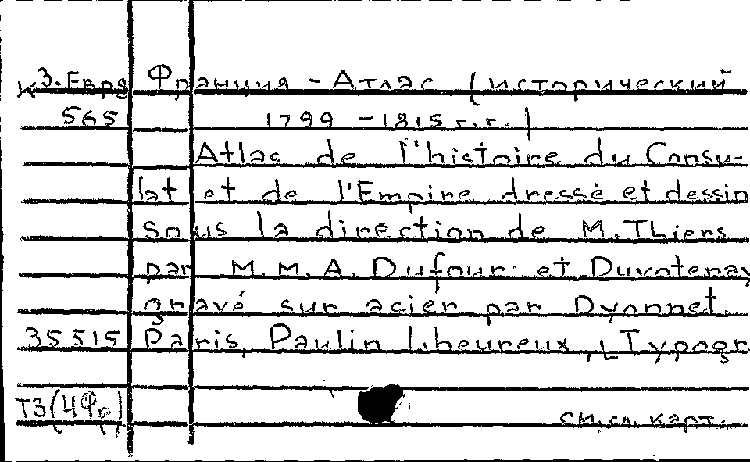 К 3. Евра Франция - Атлас (исторический
565 1799 - 1815 г.г.)
Atlas de l'histoire du Consu-
lat et de l'Empire dressé et dessin
sous la direction de M. Thiers
par M.M. A. Dufour et Duvotenay
gravé sur acier par Dyonnet.
35515 Paris, Paulin Lheureux, [Typogr
Т3(4Фр) см. сл. карт.